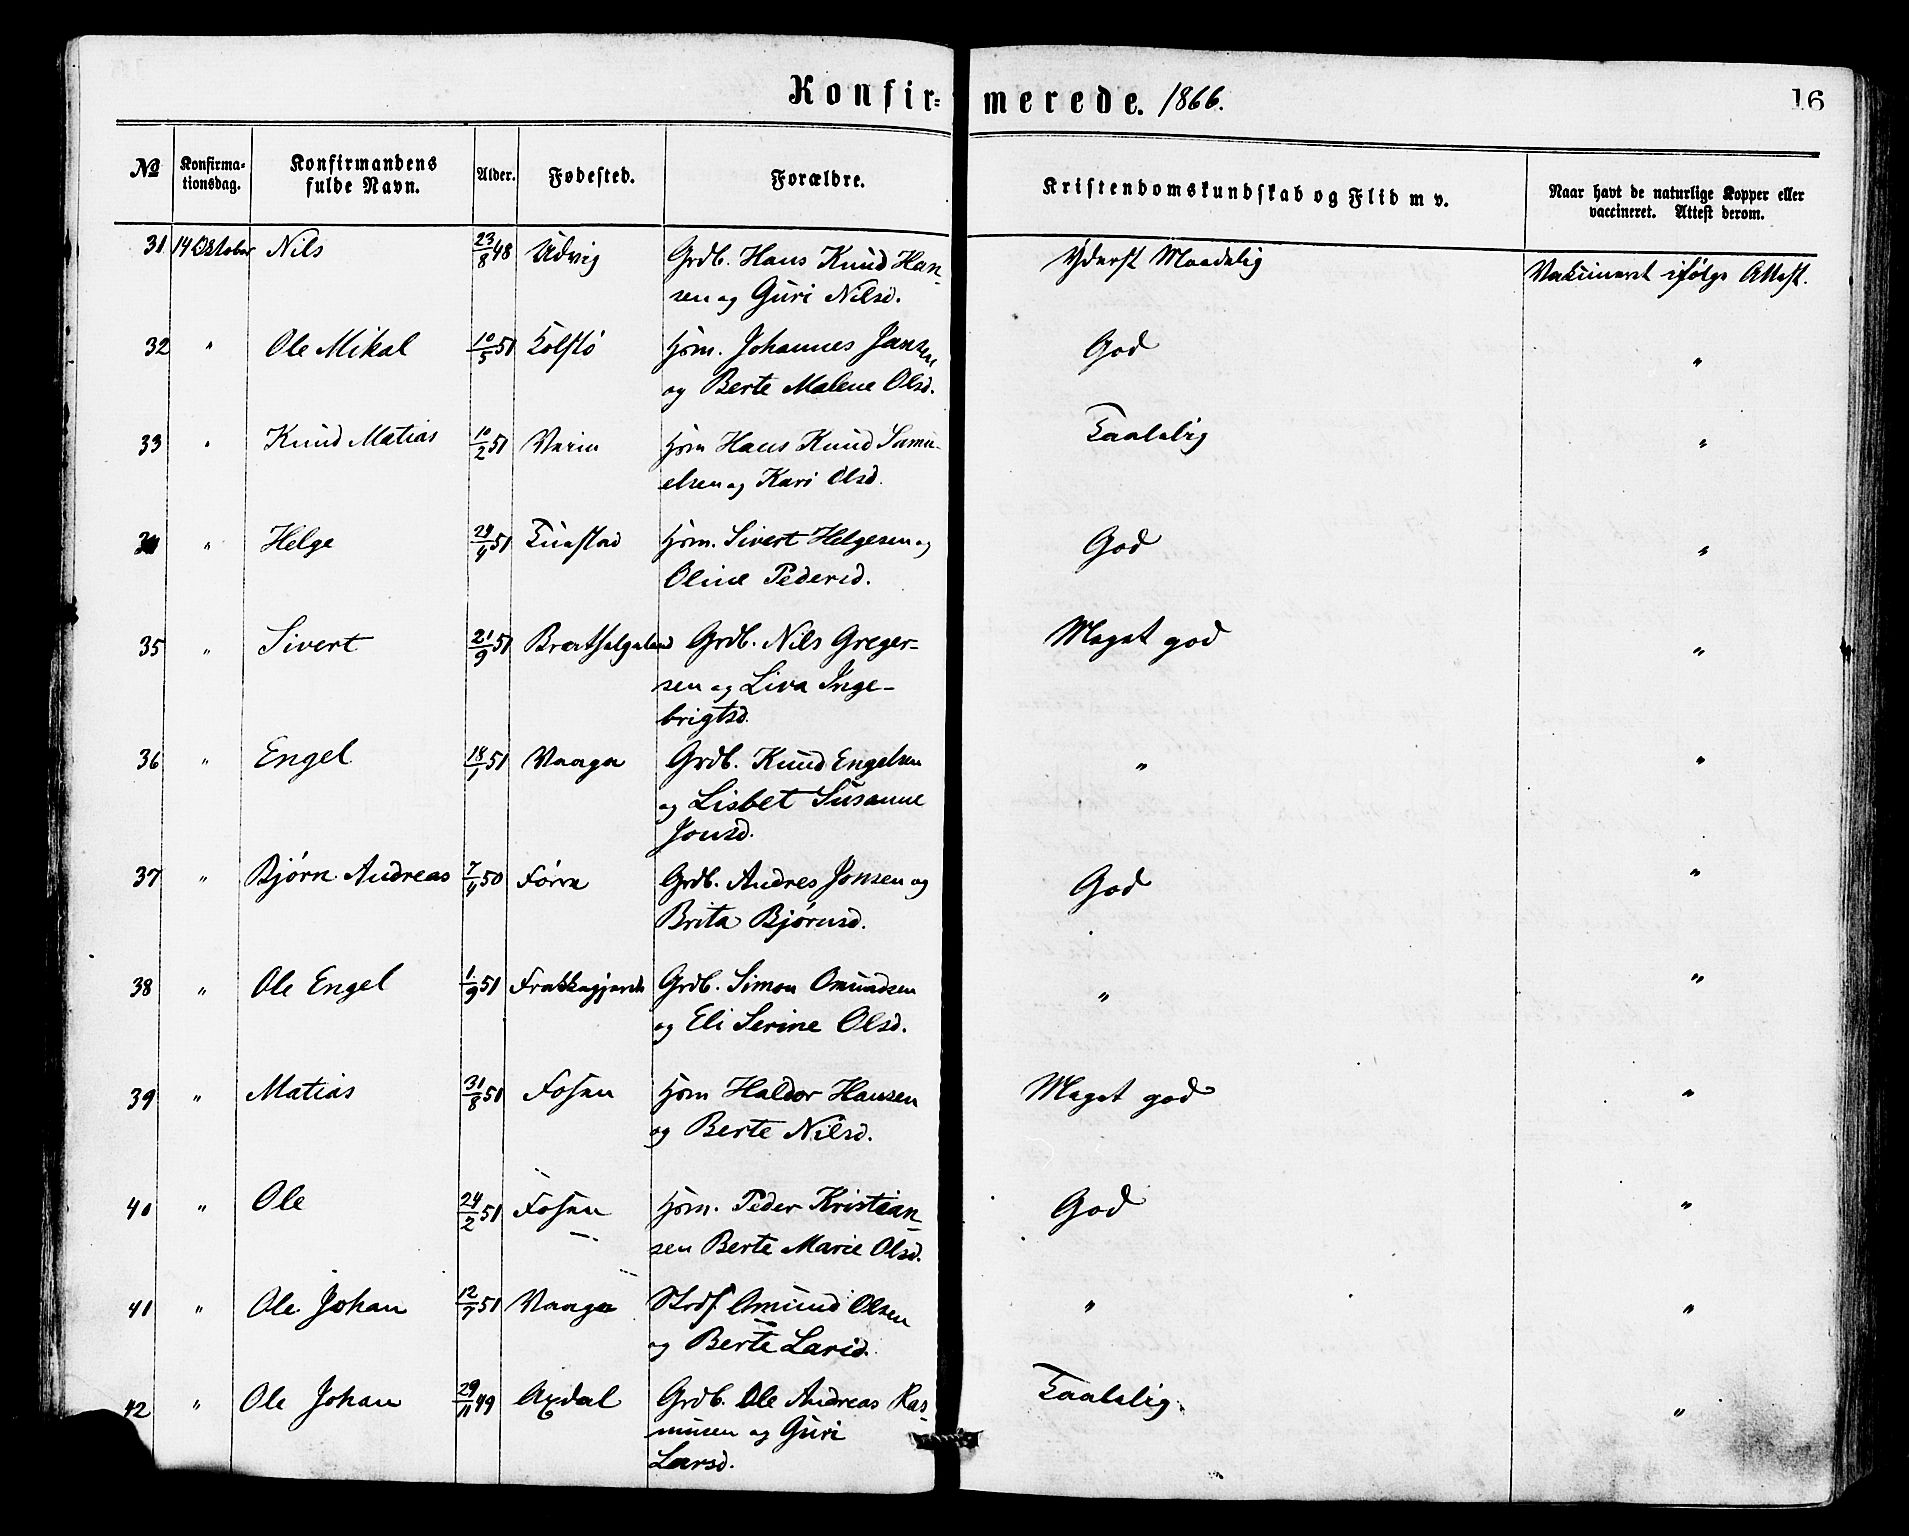 Konfir= merede. 1866. 16
No Konfirma- Konfirmandens Alder. Fødested. Forældre. Kristendomskundskab og Flid m v. Naar havt de naturlige Kopper eller
tionsdag. fulde Navn. vaccineret. Attest derom.
31 14 Oktober Nils 23/8 48 Udvig Grdb. Hans Knud Han- Yderst Maadelig Vakcineret ifølge Attest.
sen og Guri Nilsd.
32 " Ole Mikal 10/5 51 Kolstø Hsm. Johannes Jansen God "
og Berte Malene Olsd.
33 " Knud Matias 10/2 51 Hsm Hans Knud Samu- Taalelig "
elsen og Kari Olsd.
34 " Helge 51 Hsm. Sivert Helgesen og God "
Oline Pedersd.
35 " Sivert 21/9 51 Grdb. Nils Greger- Meget god "
sen og Liva Inge-
brigtsd.
36 " Engel 18/1 51 Vaaga Grdb. Knud Engelsen " "
og Lisbet Susanne
Jonsd.
37 " Bjørn Andreas 50 Førre Grdb. Andres Jonsen og God "
Brita Bjørnsd.
38 " Ole Engel 1/9 51 Frakkagjerde Grdb. Simon Omundsen " "
og Eli Serine Olsd.
39 " Matias 31/8 51 Fosen Hsm Haldor Hansen Meget god "
og Berte Nilsd.
40 " Ole 24/2 51 Fosen Hsm. Peder Kristian- God "
sen Berte Marie Olsd.
41 " Ole Johan 12/7 51 Vaaga Strdf. Omund Olsen " "
og Berte Larsd.
42 " Ole Johan 29/11 49 Axdal Grdb. Ole Andreas Ras- Taalelig "
musen og Guri
Larsd.